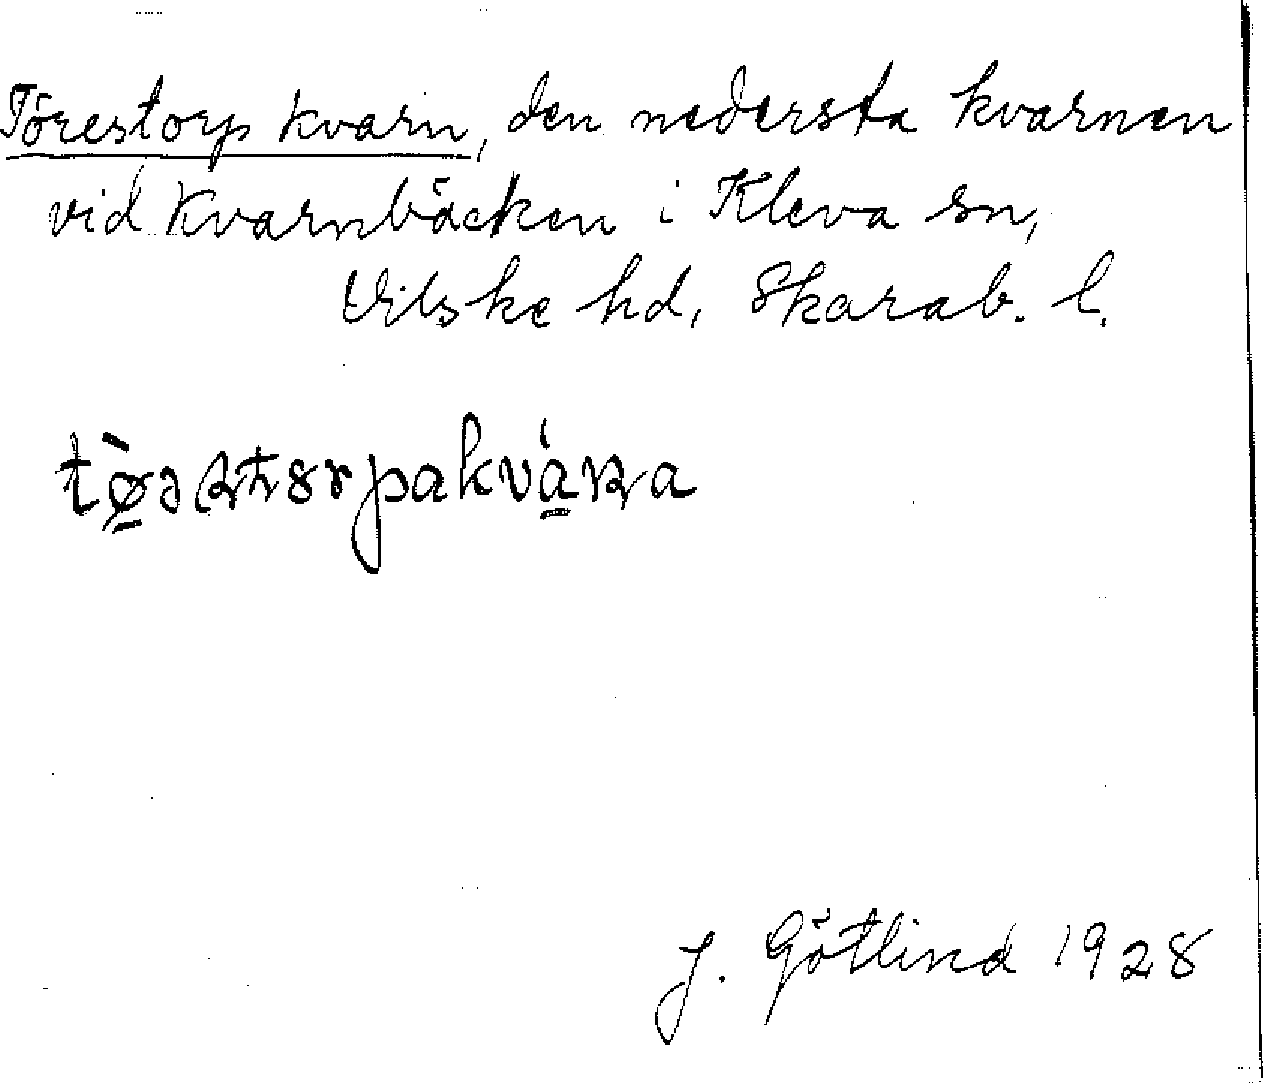 Törestorps kvarn, den nedersta kvarnen
vid Kvarnbäcken i Kleva sn,
Vilske hd, Skarab. l.
J. Götlind 1928